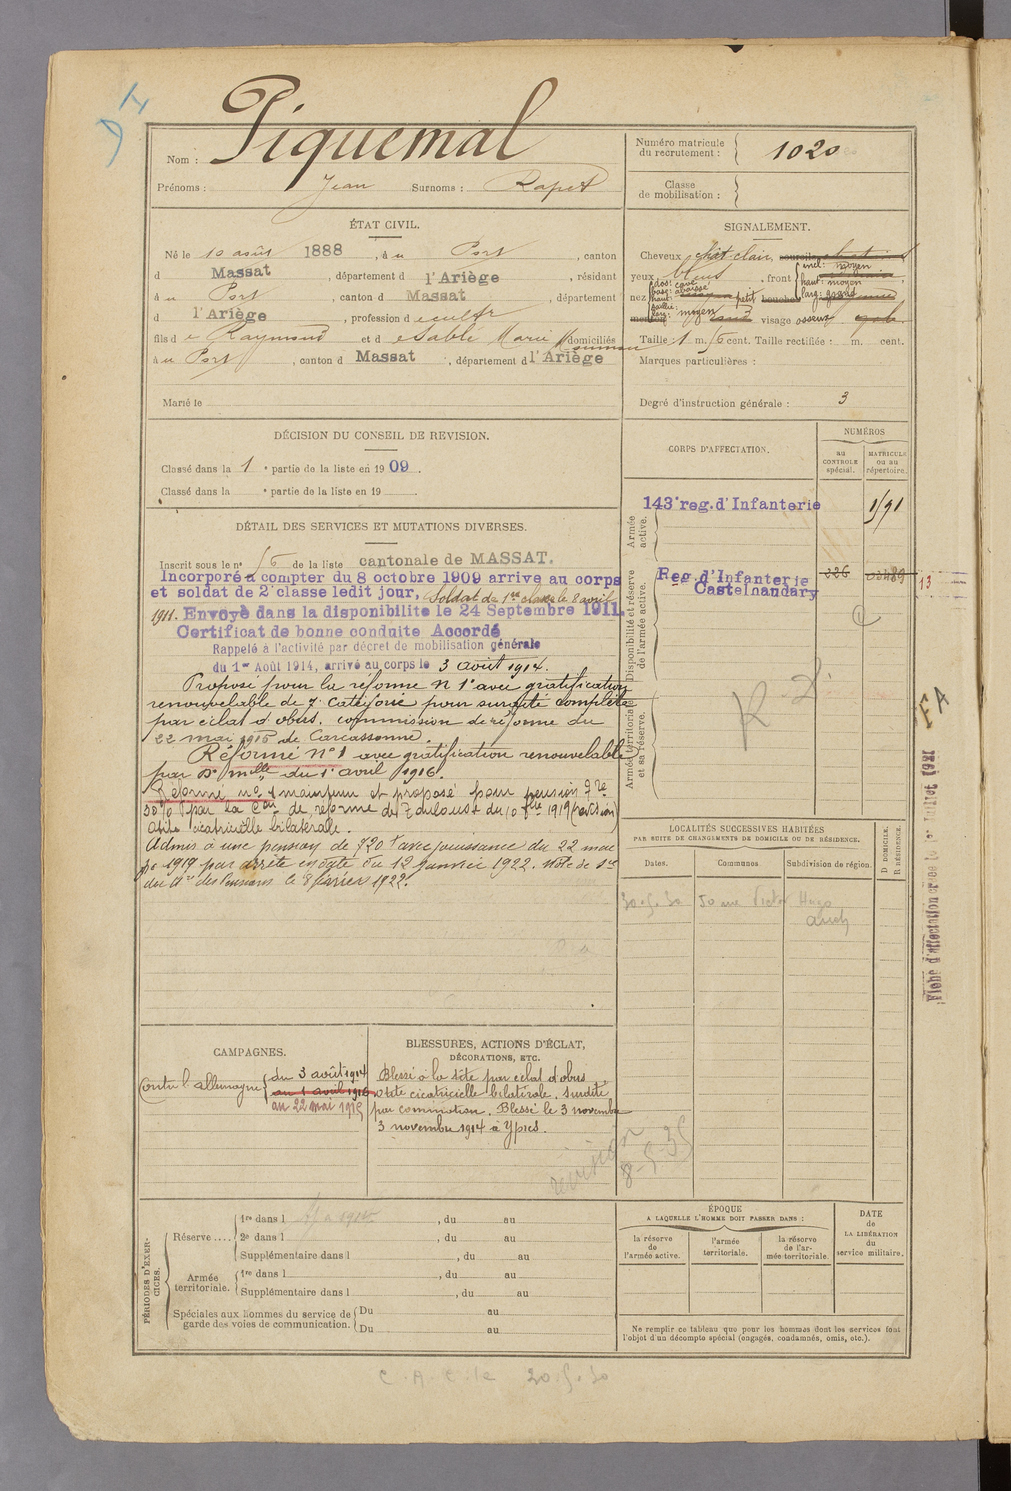 Nom : Piquemal
Prénoms : Jean Surnoms : Rapet
Numéro matricule du recrutement : 1020
Classe de mobilisation :
ÉTAT CIVIL.
Né le 10 août 1888, à u Port, canton
d Massat, département d l'Ariège, résidant
à u Port, canton d Massat, département
d l'Ariège, profession de cultr
fils d e Raymond et d e Sablé Marie domiciliés
à u Port, canton d Massat, département d l'Ariège
Marié le
SIGNALEMENT.
Cheveux chât clair, sourcils
yeux bleus, front incl: moyen haut: moyen larg: grand
nez dos: cavé base: abaissé haut: petit bouche
saillie: larg: moyen visage osseux
Taille 1 m. cent. Taille rectifiée : m. cent.
Marques particulières :
Degré d'instruction générale : 3
DÉCISION DU CONSEIL DE REVISION.
Classé dans la 1e partie de la liste en 1909.
Classé dans la e partie de la liste en 19
CORPS D'AFFECTATION.
NUMÉROS
au CONTROLE spécial.
MATRICULE ou au répertoire.
Armée active.
143e reg. d'Infanterie
Disponibilité et réserve de l'armée active.
Reg. d'Infanterie 326
Castelnaudary
13
Armée territoriale et sa réserve.
DÉTAIL DES SERVICES ET MUTATIONS DIVERSES.
Inscrit sous le no de la liste cantonale de MASSAT.
Incorporé à compter du 8 octobre 1909 arrivé au corps
et soldat de 2e classe ledit jour, Soldat de 1re classe le 8 avril
1911. Envoyé dans la disponibilité le 24 Septembre 1911.
Certificat de bonne conduite Accordé
Rappelé à l'activité par décret de mobilisation générale
du 1er Août 1914, arrivé au corps le 3 août 1914.
Proposé pour la réforme N 1 avec gratification
renouvelable de 7e catégorie pour surdité complète
par éclat d'obus. commission de réforme du
22 mai 1915 de Carcassonne.
Réformé No 1 avec gratification renouvelable
par Don mlle du 1er avril 1916.
Réformé no 1 maintenu et proposé pour pension
30% par la Con de réforme de Toulouse du 10 1919 (révision)
Otite cicatricielle bilatérale.
Admis à une pension de 720 f avec jouissance du 22 mai
1919 par arrêté en date du 12 janvier 1922. Note de
du des Pensions le 8 février 1922.
LOCALITÉS SUCCESSIVES HABITÉES
PAR SUITE DE CHANGEMENTS DE DOMICILE OU DE RÉSIDENCE.
Dates. Communes. Subdivision de région. D DOMICILE. R RÉSIDENCE.
30.5.30 50 rue Victor Hugo
Auch
Fiche d'affectation créée le 1er Juillet 1921
CAMPAGNES.
Contre l'allemagne du 3 août 1914
au 1 avril 1916
au 22 mai 1915
BLESSURES, ACTIONS D'ÉCLAT,
DÉCORATIONS, ETC.
Blessé à la tête par éclat d'obus
otite cicatricielle bilatérale, surdité
par commotion. Blessé le 3 novembre
3 novembre 1914 à Ypres.
révision
8-5-35
PÉRIODES D'EXERCICES.
Réserve.... 1re dans l , du au
2e dans l , du au
Supplémentaire dans l , du au
Armée territoriale. 1re dans l , du au
Supplémentaire dans l , du au
Spéciales aux hommes du service de garde des voies de communication. Du au
Du au
ÉPOQUE
A LAQUELLE L'HOMME DOIT PASSER DANS :
la réserve de l'armée active.
l'armée territoriale.
la réserve de l'armée territoriale.
DATE de LA LIBÉRATION du service militaire.
Ne remplir ce tableau que pour les hommes dont les services font
l'objet d'un décompte spécial (engagés, condamnés, omis, etc.).
20.5.30